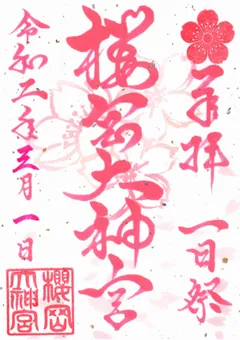 奉拝 一日祭
櫻岡大神宮
令和二年三月一日
櫻岡大神宮